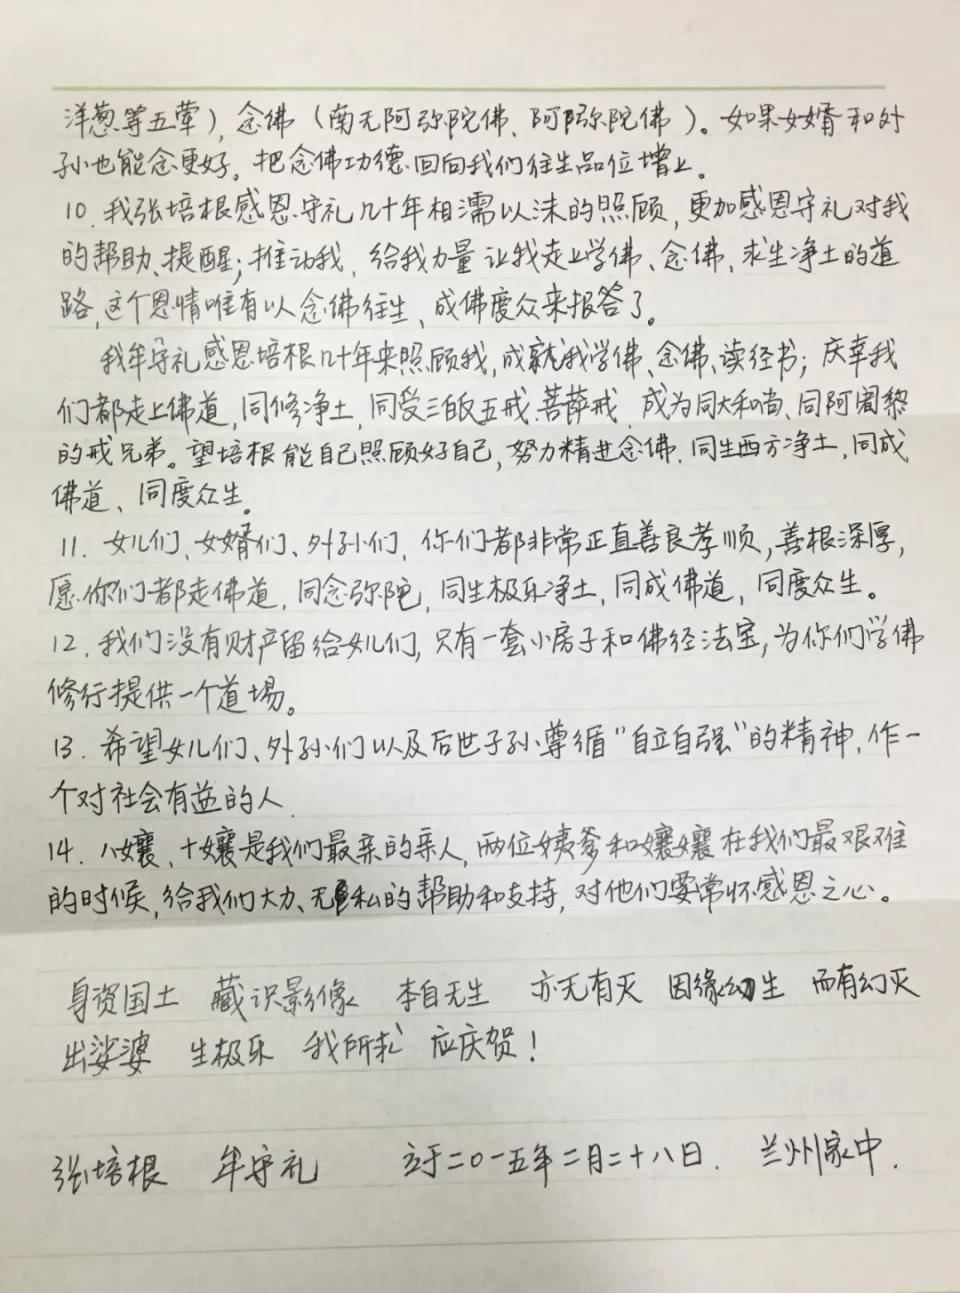 洋葱等五荤)，念佛（南无阿弥陀佛、阿弥陀佛）。如果女婿和外
孙也能念更好，把念佛功德回向我们往生品位增上。
10. 我张培根感恩守礼几十年相濡以沫的照顾，更加感恩守礼对我
的帮助、提醒；推动我，给我力量让我走上学佛、念佛、求生净土的道
路，这个恩情唯有以念佛往生、成佛度众来报答了。
我牟守礼感恩培根几十年来照顾我，成就我学佛、念佛、读经书；庆幸我
们都走上佛道，同修净土，同受三皈五戒、菩萨戒，成为同大和尚、同阿阇黎
的戒兄弟。望培根能自己照顾好自己，努力精进念佛，同生西方净土，同成
佛道、同度众生。
11. 女儿们、女婿们、外孙们，你们都非常正直善良孝顺，善根深厚，
愿你们都走佛道，同念弥陀，同生极乐净土，同成佛道，同度众生。
12. 我们没有财产留给女儿们，只有一套小房子和佛经法宝，为你们学佛
修行提供一个道场。
13. 希望女儿们、外孙们以及后世子孙尊循“自立自强”的精神，作一
个对社会有益的人
14. 八嬢，十嬢是我们最亲的亲人，两位姨爹和嬢嬢在我们最艰难
的时候，给我们大力、无私的帮助和支持，对他们要常怀感恩之心。
身资国土 藏识影像 本自无生 亦无有灭 因缘幻生 而有幻灭
出娑婆 生极乐 我所求 应庆贺！
张培根 牟守礼 立于二〇一五年二月二十八日. 兰州家中.